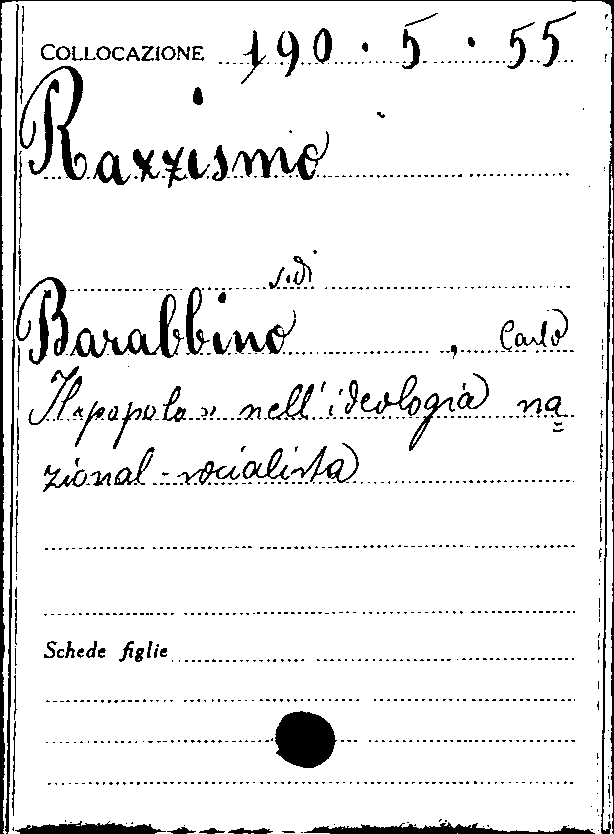 COLLOCAZIONE 190.5.55
Razzismo
s.d.
Barabbino, Carlo
Il «popolo» nell'ideologia na=
zional-socialista
Schede figlie